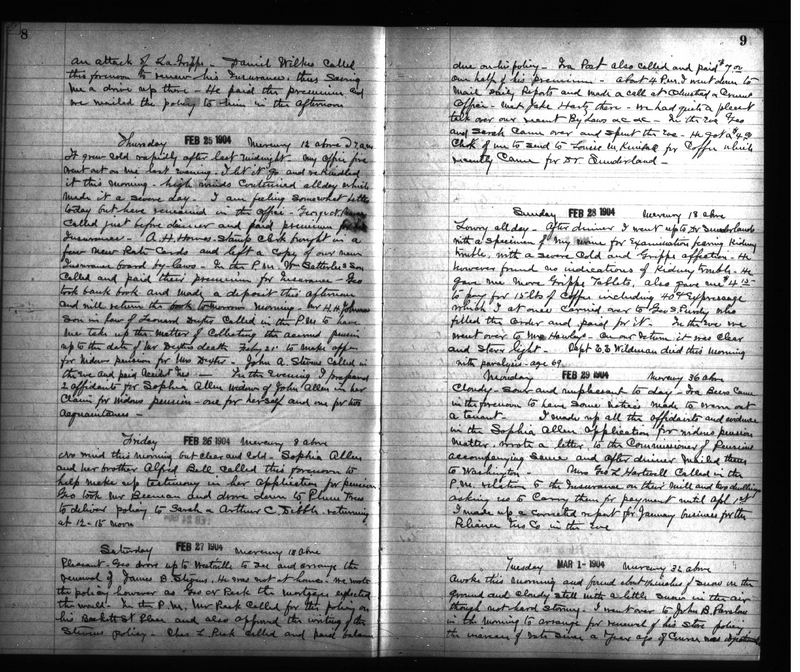 8
an attack of La Grippe - Daniel Wilkes called
this forenoon to renew his Insurance, thus saving
me a drive up there - He paid the premium and
we mailed the policy to him in the afternoon
Thursday FEB 25 1904 Mercury 12 above at 7 am
It grew cold rapidly after last midnight - My office fire
went out on me last evening - I let it go and rekindled
it this morning - high winds continued all day which
made it a severe day - I am feeling somewhat better
today but have remained in the office - George
called just before dinner and paid premium
Insurance - A. H. Howes Stamp Clerk brought in a
few new Rate Cards and left a copy of our new
Insurance board by laws - In the P.M. Wm Satterlee & Son
called and paid their premium for Insurance - Geo
took bank book and made a deposit this afternoon
and will return the book tomorrow morning - Mr H H Johnson
Son in law of Leonard Dexter called in the P.M to have
me take up the matter of collecting the accrued pension
up to the date of Mr Dexters death Feby 21st to make appn
for widows pension for Mrs Dexter - John A. Stevens called in
the eve and paid accident Ins - In the evening I prepared
2 affidavits for Sophia Allen widow of John Allen in her
claim for widows pension - one for herself and one for two
acquaintances -
Friday FEB 26 1904 Mercury 8 above
No wind this morning but clear and cold - Sophia Allen
and her brother Alfred Bell called this forenoon to
help make up testimony in her application for pension
Geo took Mr Beeman and drove down to Plum Trees
to deliver policy to Sarah & Arthur C. Dibble - returning
at 12-15 noon
Saturday FEB 27 1904 Mercury 18 above
Pleasant - Geo drove up to Westville to see and arrange the
renewal of James B. Stevens. He was not at home - We wrote
the policy however as Geo or Peck the mortgagee expected
we would - In the P.M. Mr Peck called for the policy on
his Beckett St Place and also approved the writing of the
Stevens policy - Chas L. Peck called and paid balance
9
due on his policy - Ira Post also called and paid $7.00
on half of his premium - About 4 P.M. I went down to
mail Daily Reports and made a call at Olmsted & Crowe
Office - met Jake Harty there - We had quite a pleasant
talk over our recent By Laws &c &c - In the Eve Geo
and Sarah came over and spent the Eve - He got a
Check of me to send to Louise M. Kimball for Coffee which
recently came for Dr. Sunderland -
Sunday FEB 28 1904 Mercury 18 above
Lowry all day - After dinner I went up to Dr Sunderlands
with a specimen of my urine for examination fearing Kidney
trouble, with a severe Cold and Grippe affection - He
however found no indications of Kidney trouble - He
gave me more Grippe Tablets, also gave me
to pay for 15 lbs of Coffee including 40¢ Expressage
which I at once carried over to Geo S. Purdy who
filled the order and paid for it - In the eve we
went over to Mrs Hawleys - On our return it was clear
and Starr light - Capt E. S. Wildman died this morning
with paralysis - age 69
Monday FEB 29 1904 Mercury 36 above
Cloudy - Sour and unpleasant to day - Ira Beers came
in the forenoon to have some notices made to warn out
a tenant - I made up all the affidavits and evidence
in the Sophia Allen application for widows pension
matter - wrote a letter to the Commissioner of Pensions
accompanying same and after dinner mailed them
to Washington - Mrs Geo L. Hartwell called in the
P.M. relation to the Insurance on their Mill and two dwellings
asking us to carry them for payment until Apl 1st
I made up a corrected report for January business for the
Reliance Ins Co in the eve
Tuesday MAR 1 - 1904 Mercury 32 above
Awoke this morning and found about inches of snow on the
ground and cloudy still with a little snow in the air
though not hard storming - I went over to John B. Parslow
in the morning to arrange for renewal of his store policy
the increase of rate since a year ago of course was